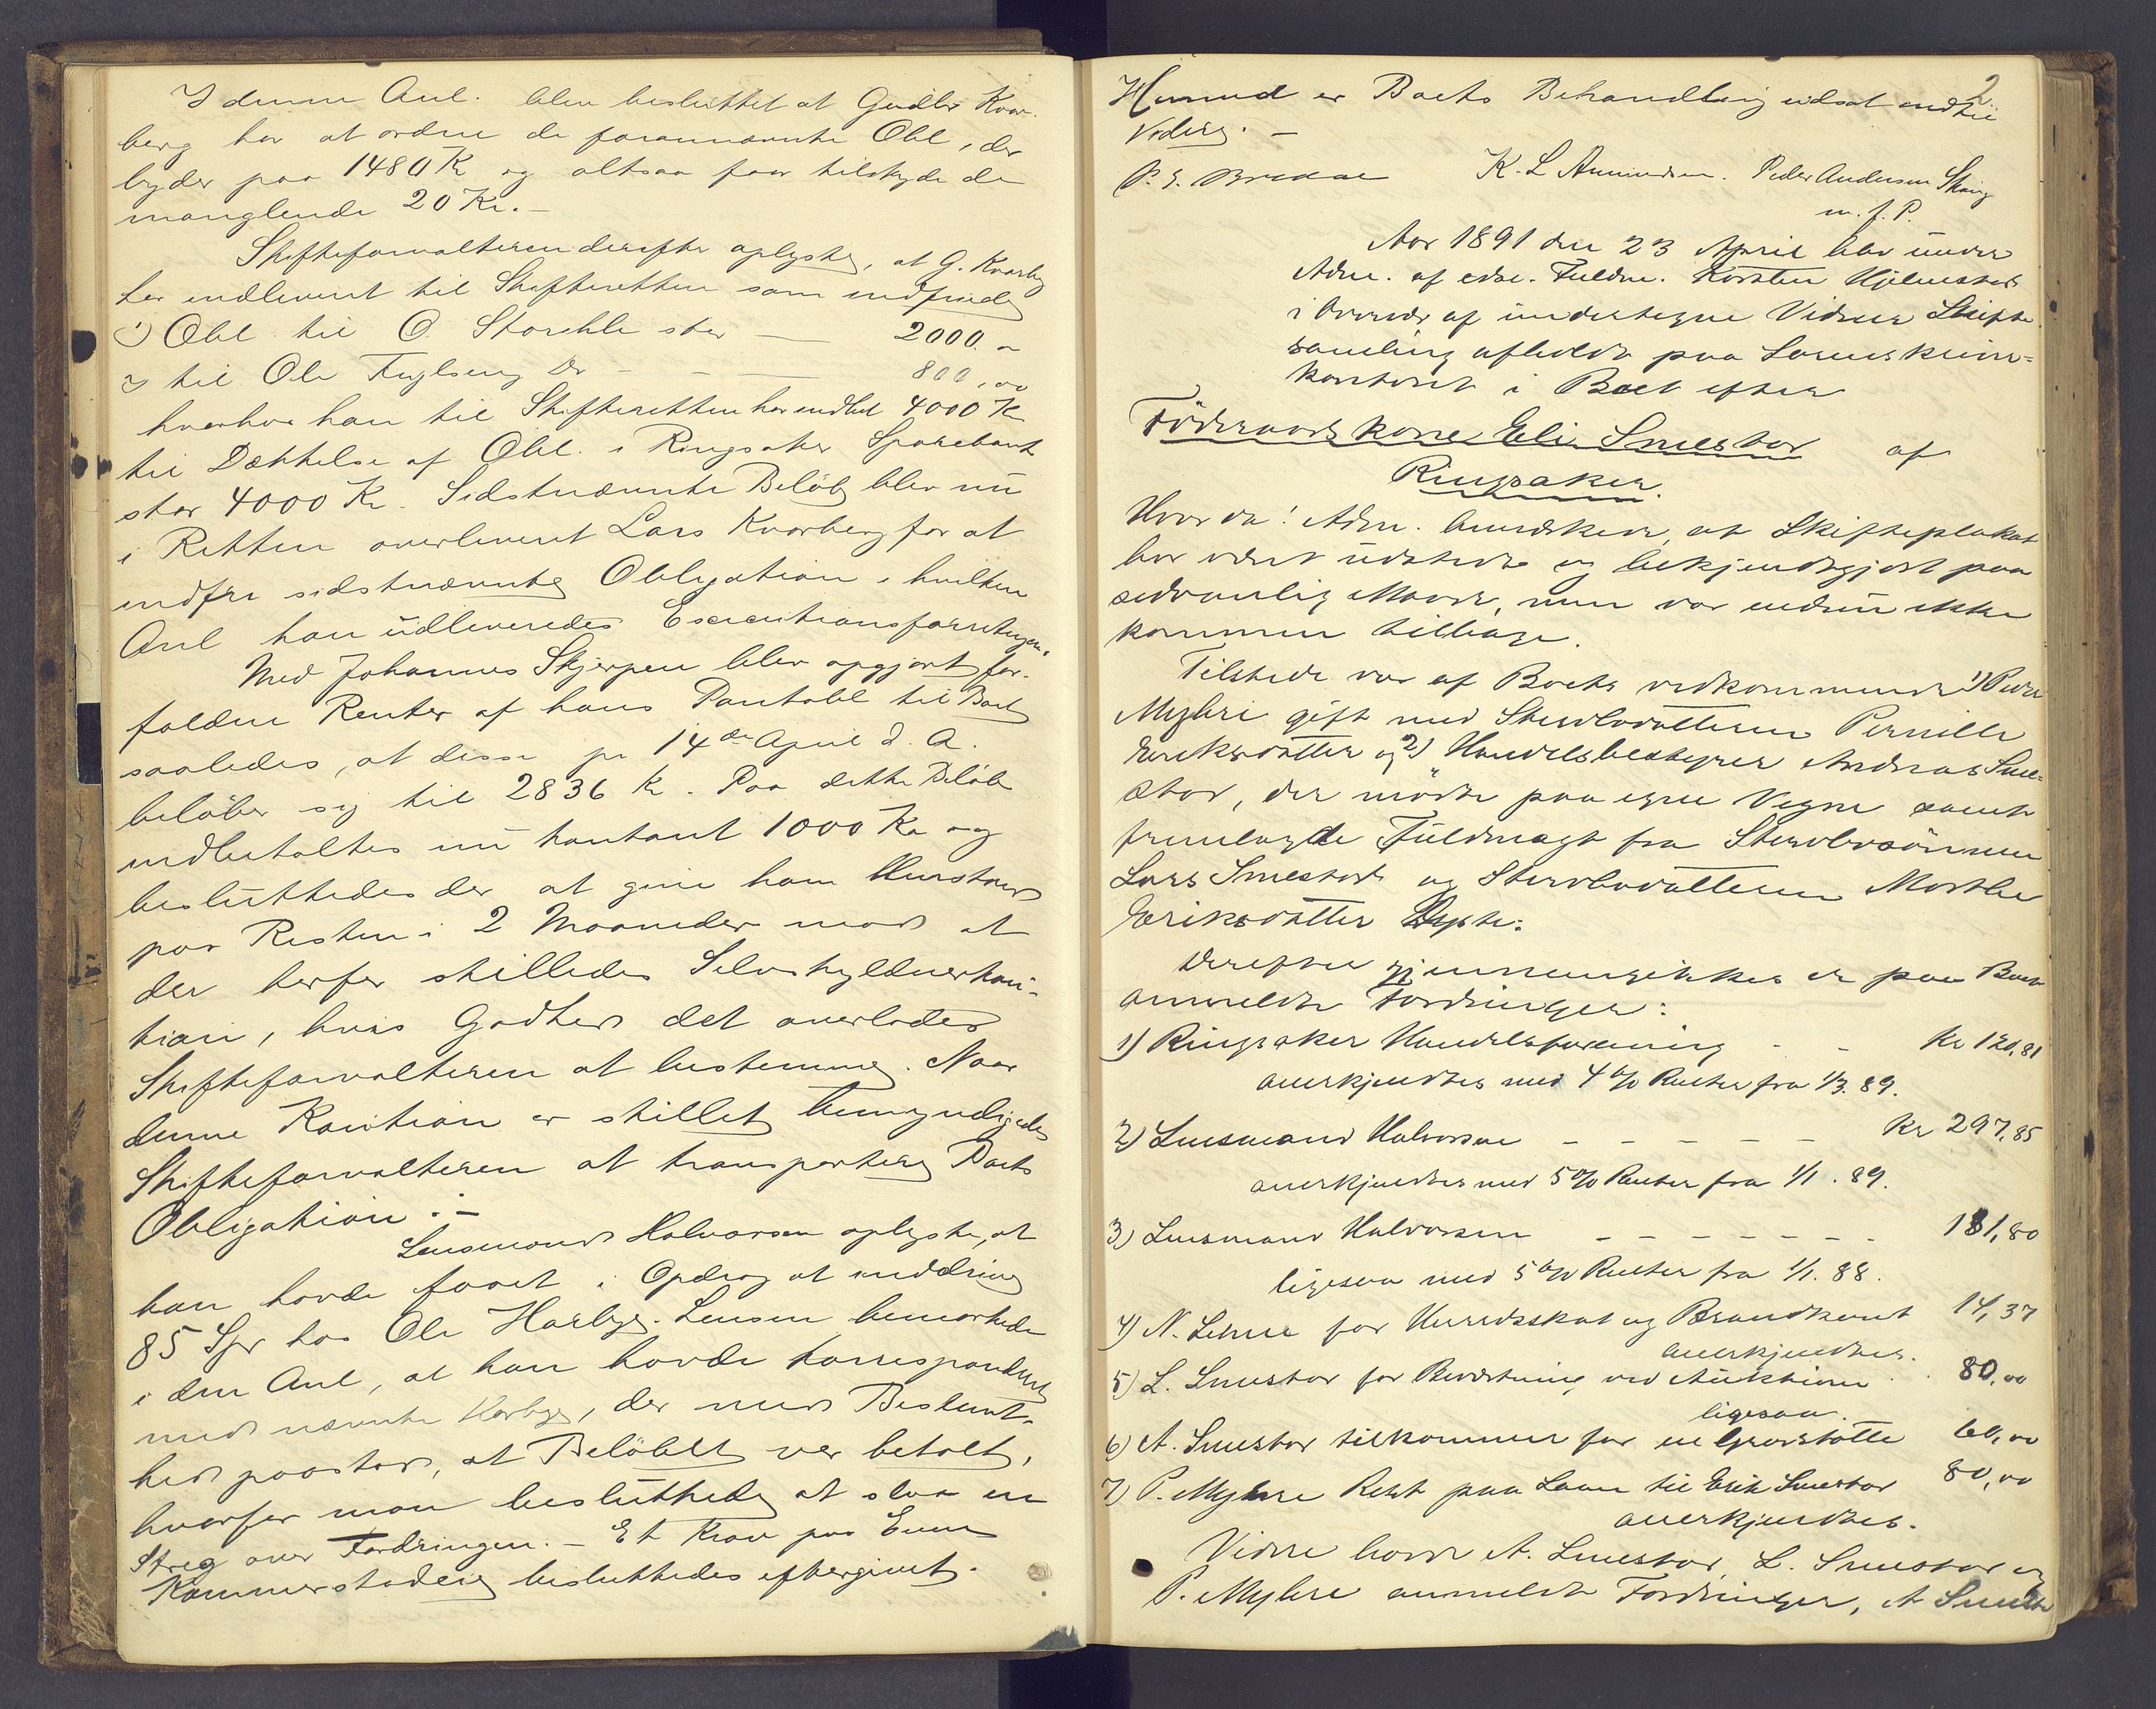 I denne Anl. blev besluttet at Gudbr Kvar-
berg har at ordne de forannævnte Obl, der
lyder paa 1480 Kr og altsaa faar tilskyde de
manglende 20 Kr. –
Skifteforvalteren derefter oplyste, at G. Kvarberg
har indleveret til Skifteretten som indfriede
1) Obl. til O. Storehle stor — 2000. „
2 til Ole Fuglseng Do - - — 800,00
hvorhos han til Skifteretten har indbet 4000 Kr
til Dækkelse af Obl. i Ringsaker Sparebank
stor 4000 Kr. Sidstnævnte Beløb blev nu
i Retten overleveret Lars Kvarberg for at
indfri sidstnævnte Obligation, i hvilken
Anl han udleveredes Executionsforretngen.
Med Johannes Skjerpen blev opgjort for-
faldne Renter af hans Pantobl til Boet
saaledes, at disse pr 14de April d. A.
beløber sig til 2836 Kr. Paa dette Beløb
indbetaltes nu kontant 1000 Kr og
besluttedes der at give ham Henstand
paa Resten i 2 Maaneder mod at
der herfor stilledes Selvskyldnerkau-
tion, hvis Godhed det overlodes
Skifteforvalteren at bestemme. Naar
denne Kaution er stillet bemyndigedes
Skifteforvalteren at transportere Boets
Obligation. –
Lensmand Halvorsen oplyste, at
han havde faaet i Opdrag at inddrive
85 Spd hos Ole Harbye. Lensm bemærkede
i den Anl, at han havde korresponderet
med nævnte Harbye, der med Bestemt-
hed paastod, at Beløbet var betalt,
hvorfor man besluttede at slaa en
Streg over Fordringen. – Et Krav paa Even
Kammerstadeie besluttedes eftergivet.
2.
Hermed er Boets Behandling udsat indtil
Videre. –
P. E. Bredal K. L Amundsen. Peder Andersen Skaug
m. f. P.
Aar 1891 den 23 April blev under
Adm. af edsv. Fuldm. Karsten Hjelmstad
i Overvær af undertegne Vidner Skifte
samling afholdt paa Sorenskriver=
kontoret i Boet efter
Föderaadskone Eli Smestad af
Ringsaker.
Hvorda! Adm. bemærkede, at Skifteplakat
har været udstedt og bekjendtgjort paa
sedvanlig Maade, men var endnu ikke
kommen tilbage.
Tilstede var af Boets vedkommende 1) Peder
Myhre gift med Stervbodatteren Pernille
Eriksdatter og 2) Handelsbestyrer Andreas Sme=
stad, der mödte paa egne Vegne samt
fremlagde Fuldmagt fra Stervbosönnen
Lars Smestad og Stervbodatteren Marthe
Eriksdatter Dypte.
Derefter gjennemgikkes de paa Boet
anmeldte Fordringer:
1) Ringsaker Handelsforening - - Kr 120,81
anerkjendtes med 4 % Renter fra 1/3. 89.
2) Lensmand Halvorsen – – – – – Kr 297,85
anerkjendtes med 5 % Renter fra 1/1. 89.
3) Lensmand Halvorsen – – – – – – – 181,80
ligesaa med 5 % Renter fra 1/1. 88.
4) N. Lehne for Herredsskat og Brandkont 14,37
anerkjendtes.
5) L. Smestad for Bevertning ved Auktionen . 80,00
ligesaa.
6) A. Smestad tilkommer for en Gravstötte 60,00
7) P. Myhre Rest paa Laan til Erik Smestad 80,00
anerkjendtes.
Videre havde A. Smestad, L. Smestad og
P. Myhre anmeldte Fordringer, A Smesta